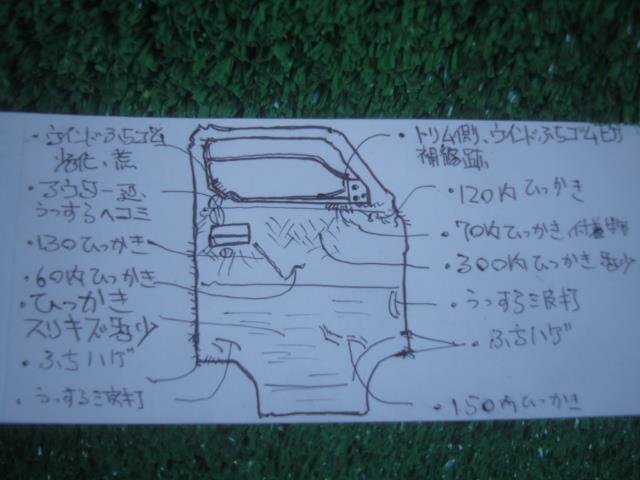 ・ウインドふちゴム
劣化、荒
うっすらヘコミ
・130ひっかき
・60内ひっかき
・ひっかき
スリキズ多少
・ふちハゲ
・うっすら三波打
・トリム側、ウインドふちゴムヒビ
補修跡
・120内ひっかき
・70内ひっかき 付着物
・300内ひっかき多少
・うっすら三波打
・ふちハゲ
・150内ひっかき